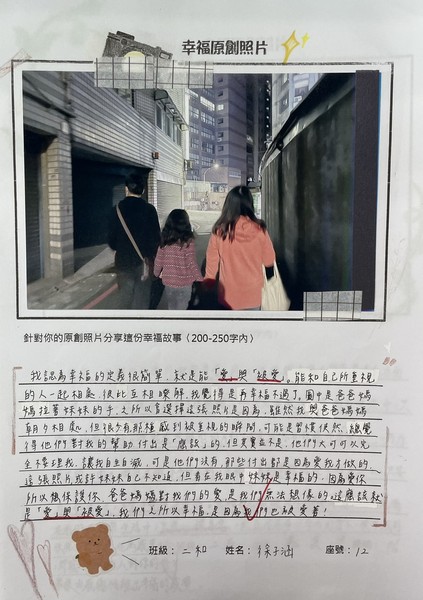 幸福原創照片
針對你的原創照片分享這份幸福故事（200-250字內）
我認為幸福的定義很簡單，就是能「愛」與「被愛」。能和自己所重視
的人一起相處，彼此互相瞭解，我覺得是再幸福不過了。圖中是爸爸媽
媽拉著妹妹的手，之所以會選擇這張照片是因為，雖然我與爸爸媽媽
朝夕相處，但很少有那種感到被重視的瞬間，可能是習慣使然，總覺
得他們對我的幫助、付出是「應該」的，但其實並不是，他們大可可以完
全不要理我，讓我自生自滅，可是他們沒有，那些付出都是因為愛我才做的。
這張照片或許妹妹自己不知道，但看在我眼中妹妹是幸福的，因為愛你
所以想保護你，爸爸媽媽對我們的愛是我們無法想像的，這應該就
是「愛」與「被愛」，我們之所以幸福，是因為我們也被愛著！
班級： 二和 姓名： 徐子涵 座號： 12